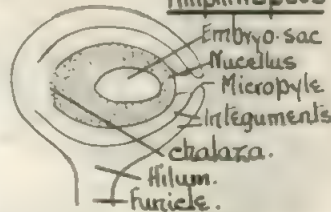 Embryo-sac
Nucellus
Micropyle
Integuments
chalaza.
Hilum.
Funicle.